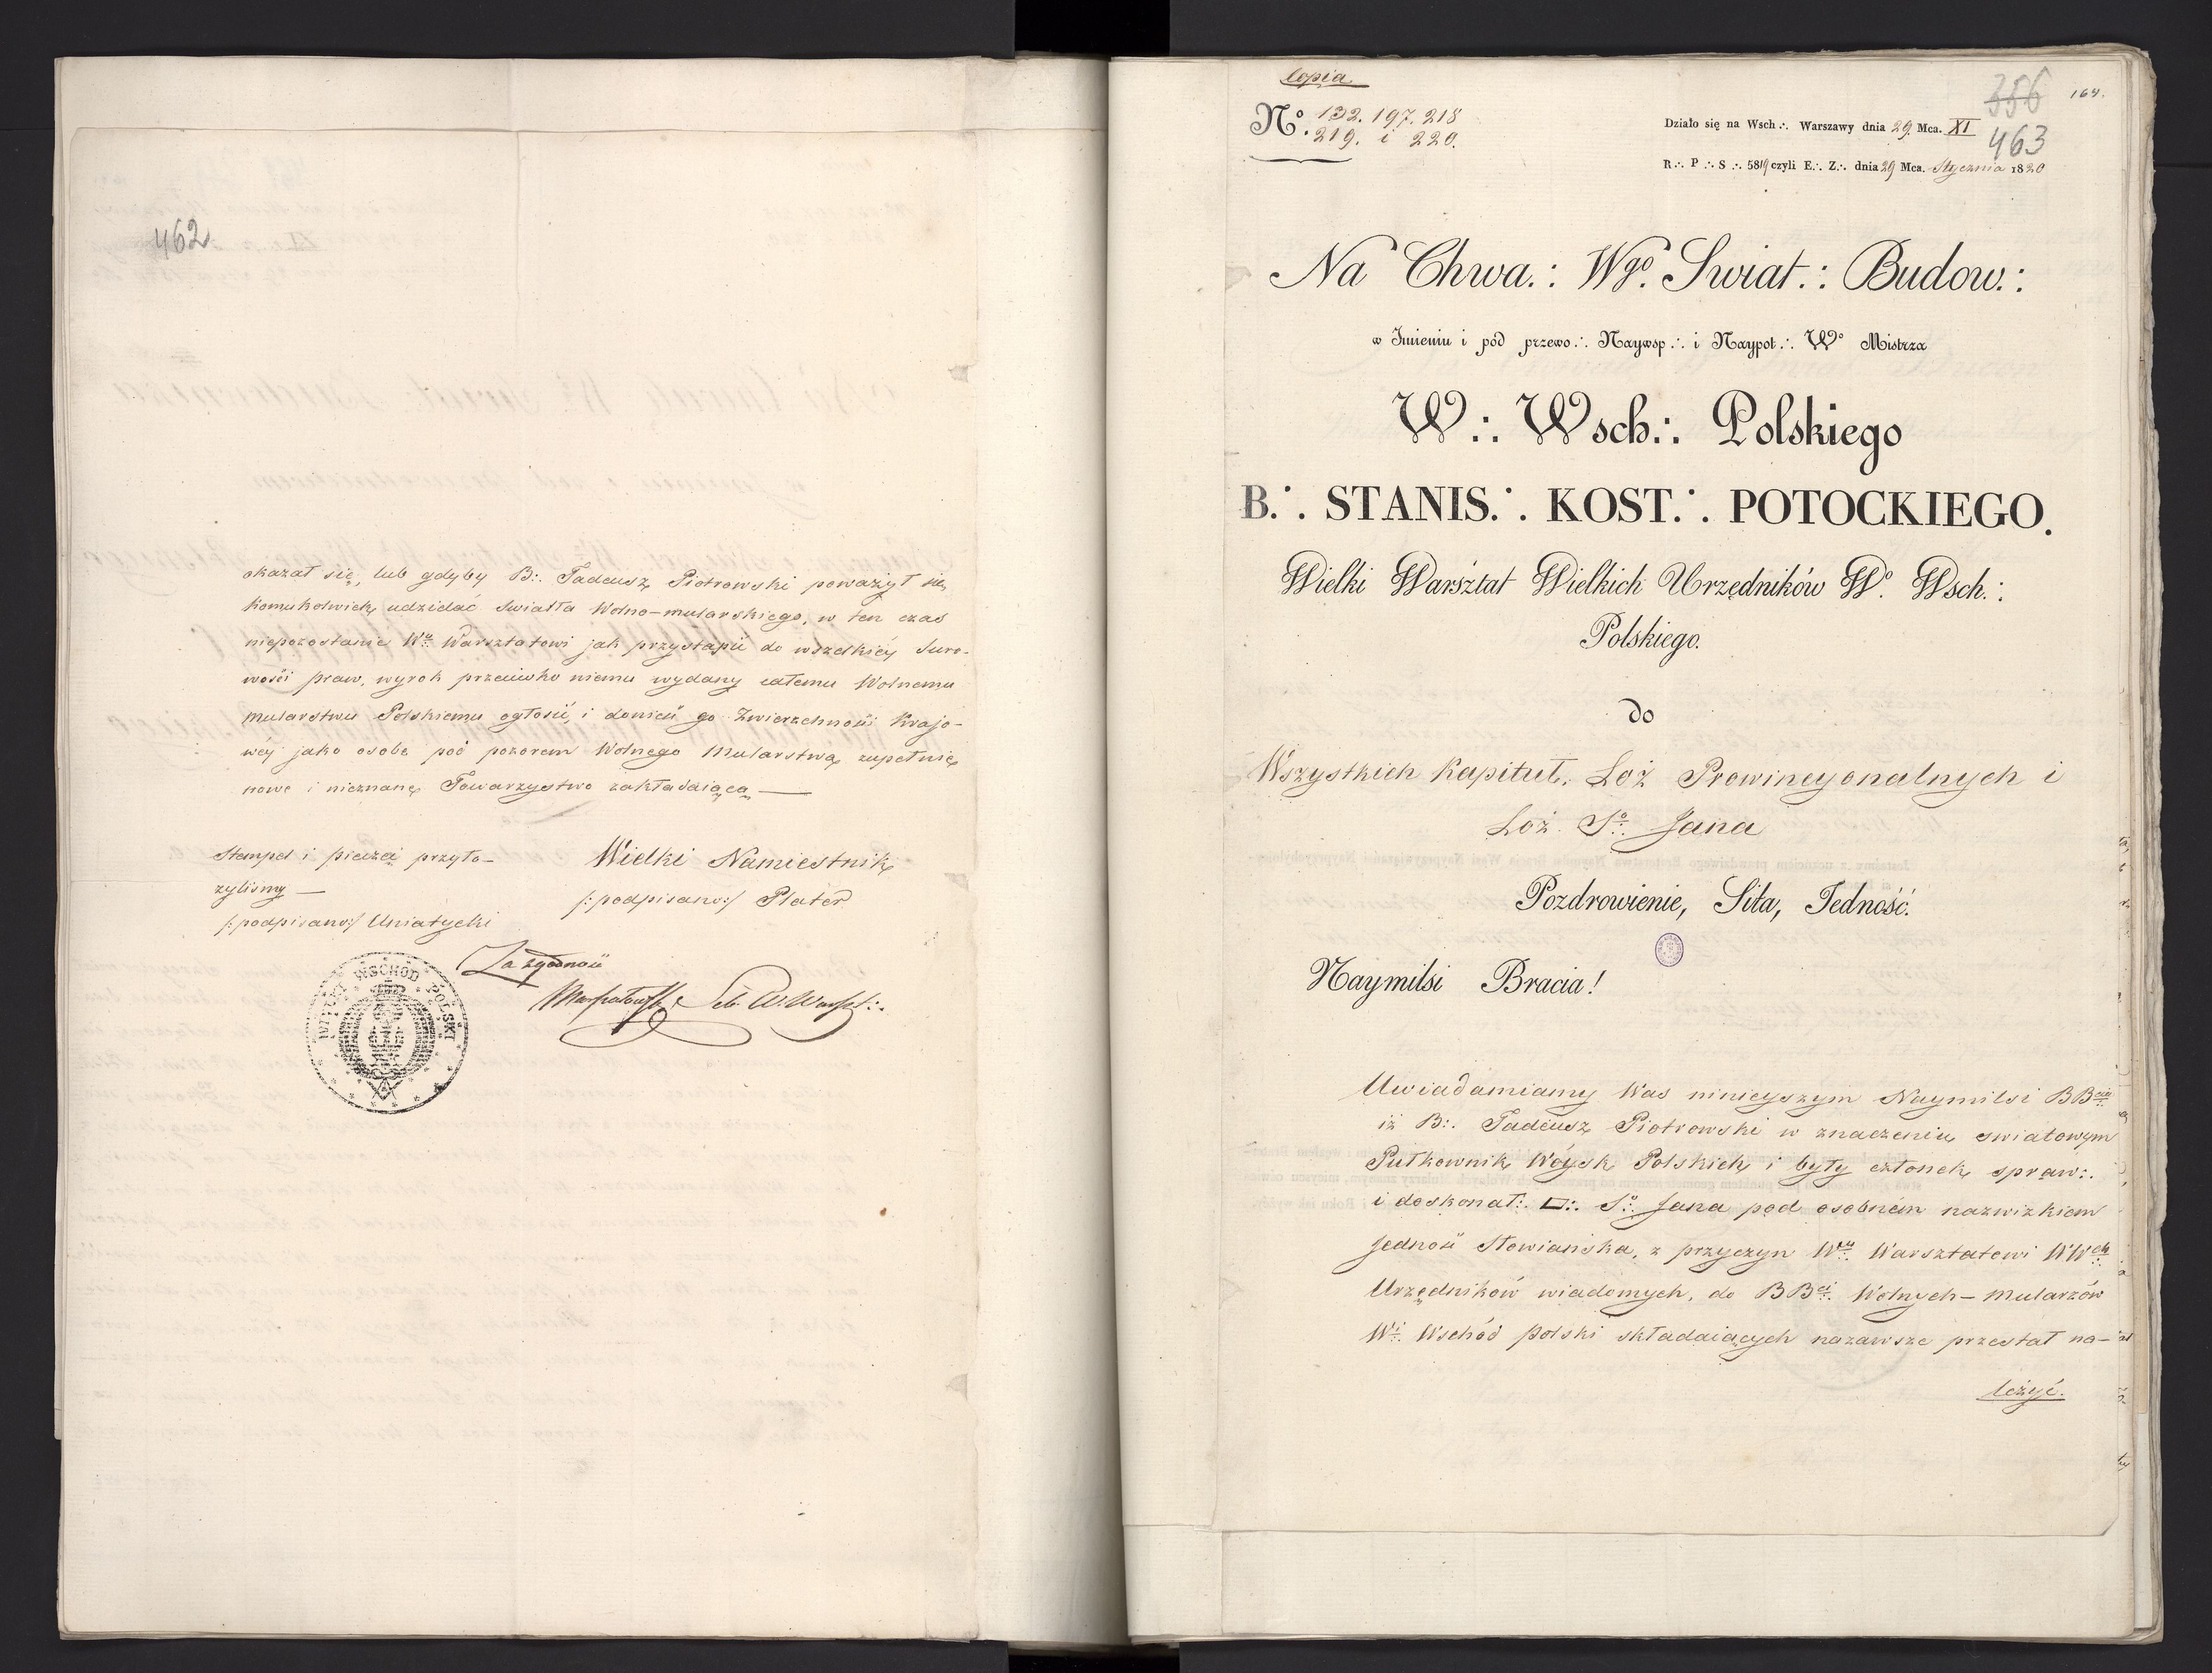 462
okazał się, lub gdyby B∴ Tadeusz Piotrowski poważył się
komukolwiek udzielać światła Wolno-mularskiego, w ten czas
niepozostanie Wu∴ Warsztatowi jak przystąpić do wszelkiéy suro-
wości praw, wyrok przeciwko niemu wydany całemu Wolnemu
Mularstwu Polskiemu ogłosić, i donieść go Zwierzchności Krajo-
wéj jako osobę pod pozorem Wolnego Mularstwa, zupełnie
nowe i nieznane Towarzystwo zakładaiącą —
Stempel i pieczęć przyło-
żyliśmy —
/:podpisano:/ Uniatycki
Wielki Namiestnik
/:podpisano:/ Plater
Za zgodność
Sek W. Warszt∴
WIELKI WSCHÓD POLSKI
Copia
No. 132. 197. 218
219. i 220.
356
164.
463
Działo się na Wsch∴ Warszawy dnia 29 Mca. XI
R∴ P∴ S∴ 5819 czyli E∴ Z∴ dnia 29 Mca. Stycznia 1820
Na Chwa.: Wgo. Swiat.: Budow.:
w Imieniu i pód przewo∴ Naywsp∴ i Naypot∴ Wo Mistrza
W∴ Wsch∴ Polskiego
B∴ STANIS∴ KOST∴ POTOCKIEGO.
Wielki Warsztat Wielkich Urzędników Wo. Wsch.:
Polskiego.
do
Wszystkich Kapituł, Loż Prowincyonalnych i
Loż So∴ Jana
Pozdrowienie, Siła, Jedność.
Naymilsi Bracia!
Uwiadamiamy Was ninieyszym Naymilsi BBcia∴
iż B∴ Tadeusz Piotrowski w znaczeniu swiatowym
Pułkownik Wóysk Polskich i były członek spraw∴
i doskonał∴ □∴ So∴ Jana pod osobném nazwizkiem
Jedność Słowiańska, z przyczyn Wmu∴ Warsztatowi WWch∴
Urzędników wiadomych, do BBci∴ Wolnych-Mularzów
Wi∴ Wschód polski składaiących nazawsze przestał na-
leżyć.